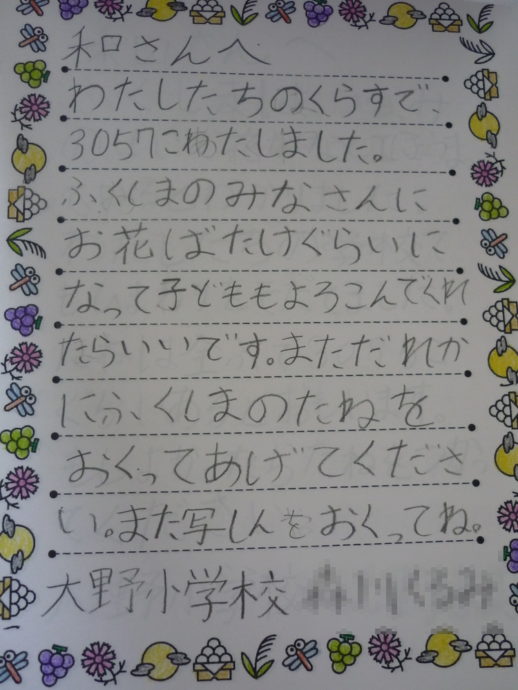 和口さんへ
わたしたちのくらすで、
3057こわたしました。
ふくしまのみなさんに
お花ばたけぐらいに
なって子どももよろこんでくれ
たらいいです。まただれか
にふくしまのたねを
おくってあげてくださ
い。また写しんをおくってね。
大野小学校